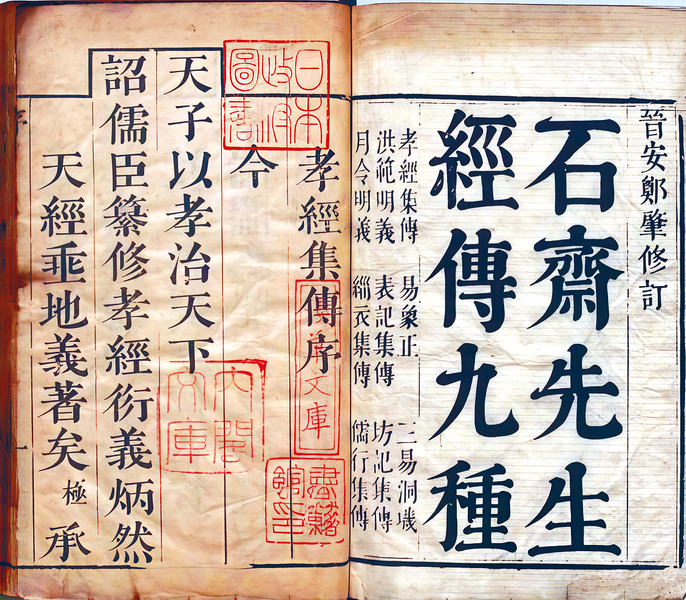 晉安鄭肇修訂
石齋先生
經傳九種
孝經集傳 易象正 三易洞璣
洪範明義 表記集傳 坊記集傳
月令明義 緇衣集傳 儒行集傳
日本政府圖書
孝經集傳序
淺草文庫
書籍館印
今
天子以孝治天下
內閣文庫
詔儒臣纂修孝經衍義炳然
天經垂地義著矣 極 承